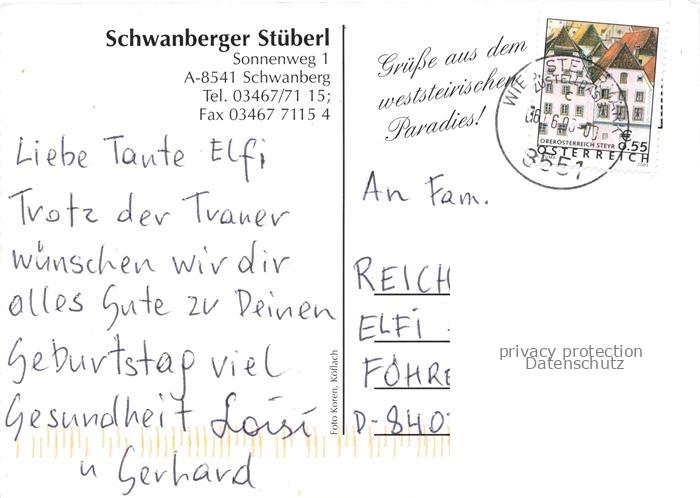 Schwanberger Stüberl
Sonnenweg 1
A-8541 Schwanberg
Tel. 03467/71 15;
Fax 03467 7115 4
Liebe Tante Elfi
Trotz der Trauer
wünschen wir dir
alles Gute zu Deinen
Geburtstag viel
Gesundheit Loisi
u Gerhard
Foto Koren, Köflach
Grüße aus dem
weststeirischen
Paradies!
8551
€ 0.55
OBERÖSTERREICH STEYR
ÖSTERREICH
An Fam.
REICH
ELFI
FÖHRE
D-840
privacy protection
Datenschutz